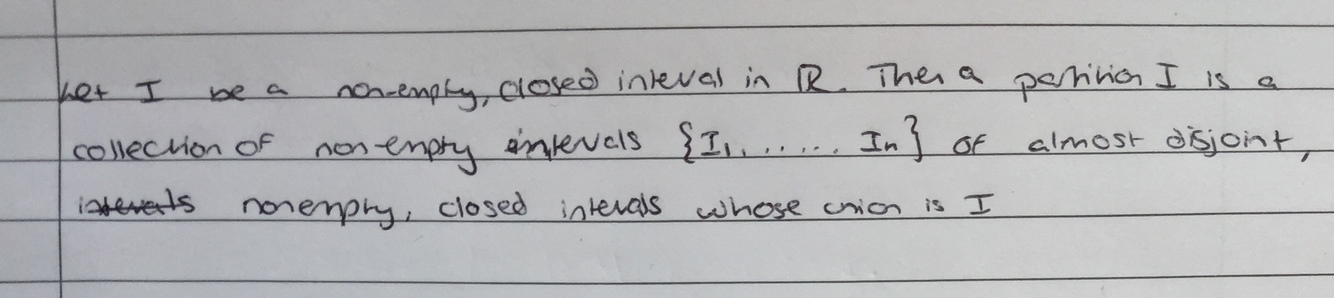 Let I be a non-empty, closed interval in ℝ. Then a partition I is a
collection of non empty intervals {I₁, ...... Iₙ} of almost disjoint,
intervals nonempty, closed intervals whose union is I